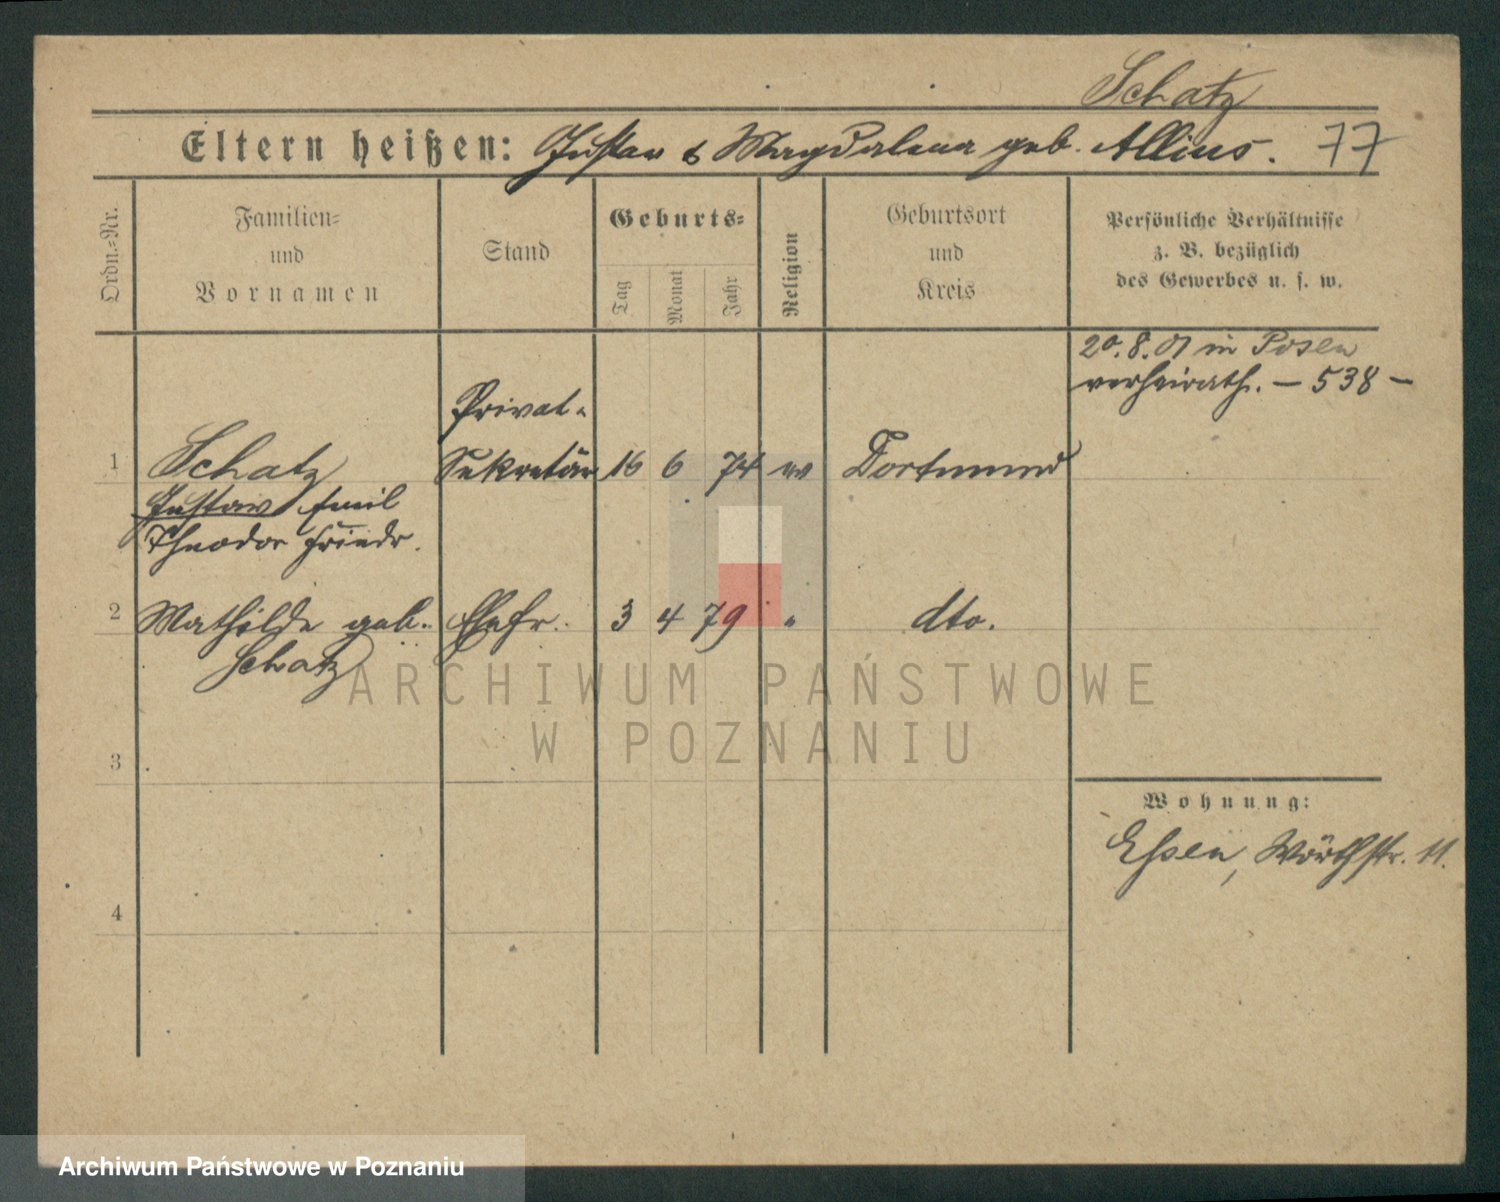 Schatz
Eltern heißen: Gustav & Magdalena geb. Allius. 77
Ordn.-Nr.
Familien-
und
Vornamen
Stand
Geburts-
Tag
Monat
Jahr
Religion
Geburtsort
und
Kreis
Persönliche Verhältnisse
z. B. bezüglich
des Gewerbes u. s. w.
20.8.01 in Posen
verheirath. – 538 –
Privat-
1 Schatz Sekretär 16 6 74 Dortmund
Gustav Emil
Theodor Friedr.
2 Mathilde geb. Ehefr. 3 4 79 " dto.
Schatz
3
Wohnung:
Essen, Wörthstr. 11.
4
ARCHIWUM PAŃSTWOWE
W POZNANIU
Archiwum Państwowe w Poznaniu